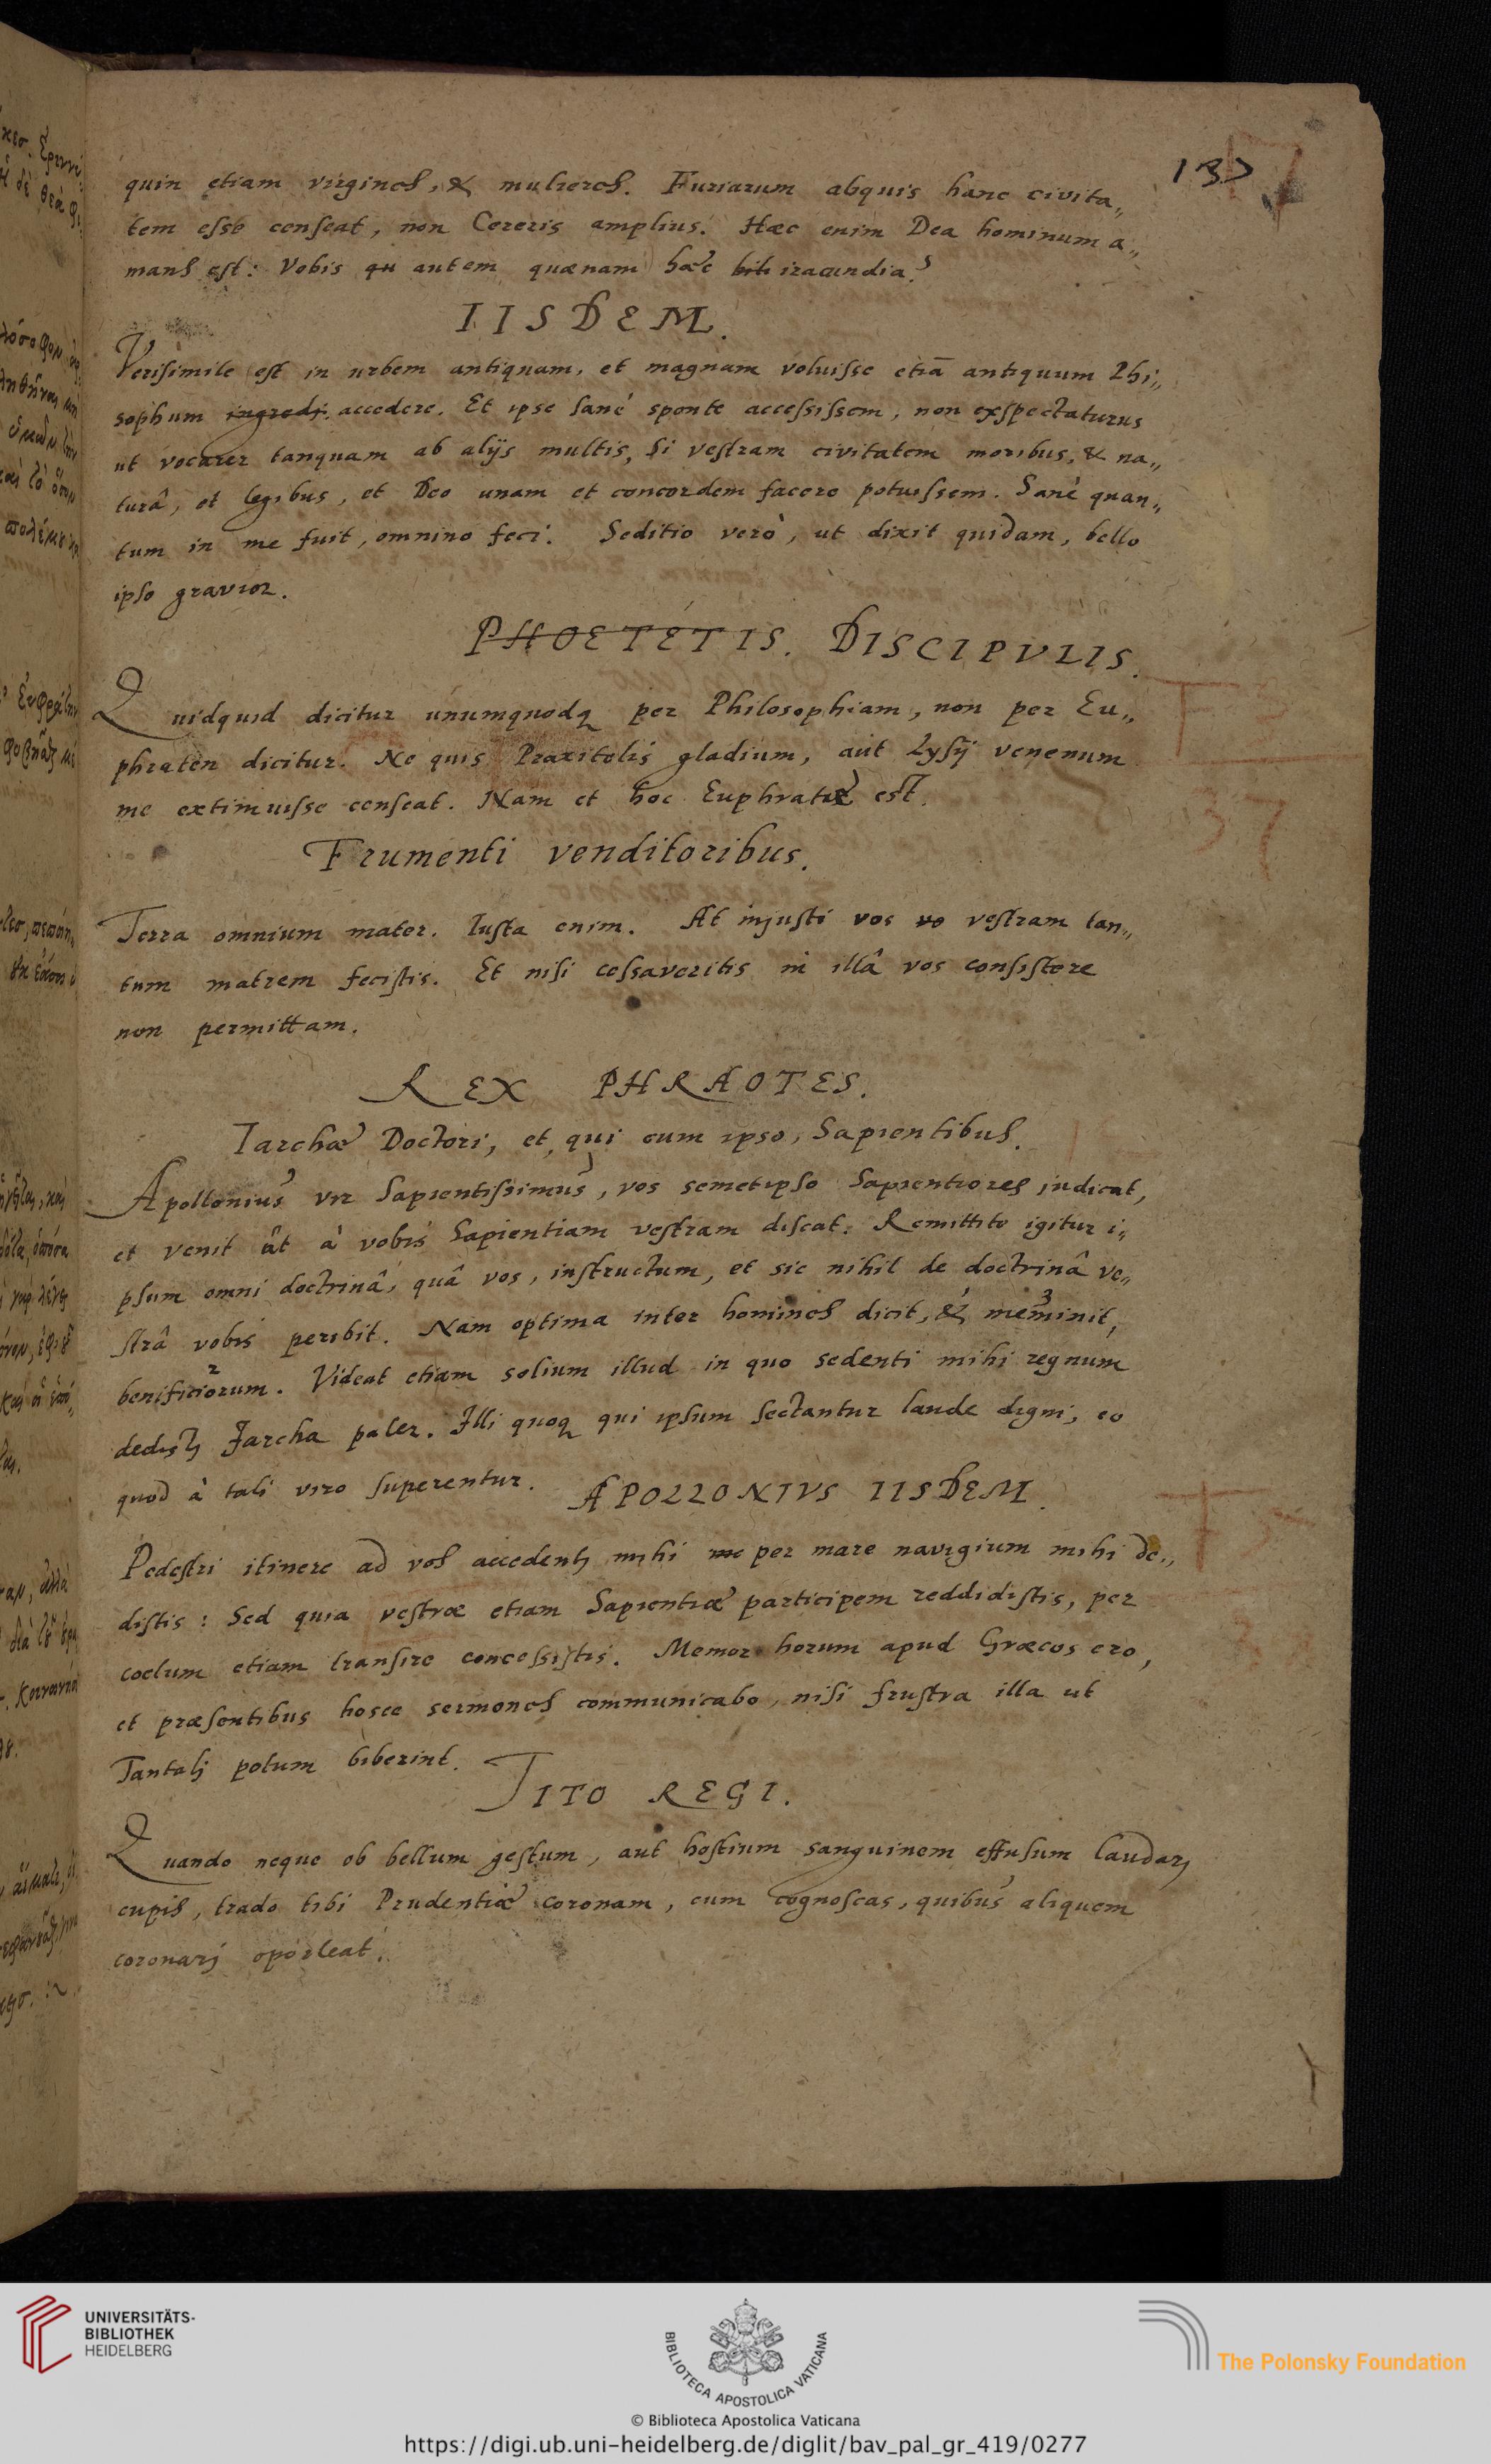 137
quin etiam virgines, & mulieres. Furiarum aliquis hanc civita„
tem esse censeat, non Cereris amplius. Hæc enim Dea hominum a„
mans est: Vobis autem quænam hæc iracundia?
IISDEM.
Verisimile est in urbem antiquam, et magnam voluisse etiā antiquum Phi„
sophum ingredi accedere. Et ipse sanè sponte accessissem, non exspectaturus
ut vocarer tanquam ab alijs multis, si vestram civitatem moribus, & na„
turâ, et legibus, et Deo unam et concordem facere potuissem. Sanè quan„
tum in me fuit, omnino feci. Seditio verò, ut dixit quidam, bello
ipso gravior.
PHOETETIS. DISCIPVLIS.
Quidquid dicitur unumquodq per Philosophiam, non per Eu„
phraten dicitur. Ne quis Praxitelis gladium, aut Lysij venenum
me extimuisse censeat. Nam et hoc Euphratæ est.
Frumenti venditoribus.
Terra omnium mater. Iusta enim. At injusti vos vo vestram tan„
tum matrem fecistis. Et nisi cessaveritis in illâ vos consistere
non permittam.
REX PHRAOTES.
Iarchæ Doctori, et qui cum ipso, Sapientibus.
Apollonius vir sapientissimus, vos semetipso sapientiores judicat,
et venit ut à vobis sapientiam vestram discat. Remittito igitur i„
psum omni doctrinâ, quâ vos, instructum, et sic nihil de doctrinâ ve„
strâ vobis peribit. Nam optima inter homines dicit, & meminit, 3
benificiorum. 2 Videat etiam solium illud in quo sedenti mihi regnum
dedisti Jarcha pater. Illi quoq qui ipsum sectantur laude digni, eo
quod à tali viro superentur. APOLLONIVS IISDEM.
Pedestri itinere ad vos accedenti mihi me per mare navigium mihi de„
distis: Sed quia vestræ etiam Sapientiæ participem reddidistis, per
coelum etiam transire concessistis. Memor horum apud Græcos ero,
et præsentibus hosce sermones communicabo, nisi frustra illa ut
Tantali potum biberint.
TITO REGI.
Quando neque ob bellum gestum, aut hostium sanguinem effusum laudari
cupis, trado tibi Prudentiæ coronam, cum cognoscas, quibus aliquem
coronari oporteat.
UNIVERSITÄTS-
BIBLIOTHEK
HEIDELBERG
BIBLIOTECA APOSTOLICA VATICANA
The Polonsky Foundation
© Biblioteca Apostolica Vaticana
https://digi.ub.uni-heidelberg.de/diglit/bav_pal_gr_419/0277